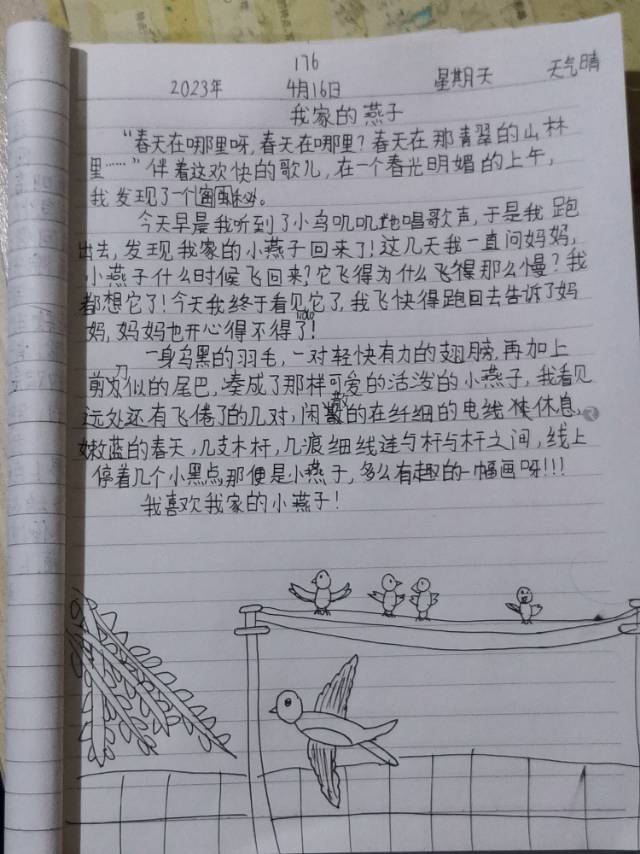 176
2023年 4月16日 星期天 天气晴
我家的燕子
“春天在哪里呀,春天在哪里?春天在那青翠的山林
里……”伴着这欢快的歌儿,在一个春光明媚的上午,
我发现了一个秘。
今天早晨我听到了小鸟叽叽地唱歌声,于是我跑
出去,发现我家的小燕子回来了!这几天我一直问妈妈,
小燕子什么时候飞回来?它飞得为什么飞得那么慢?我
都想它了!今天我终于看见它了,我飞快得跑回去告诉了妈
妈,妈妈也开心得不得了!
一身乌黑的羽毛,一对轻快有力的翅膀,再加上
剪刀似的尾巴,凑成了那样可爱的活泼的小燕子,我看见
远处还有飞倦了的几对,闲散的在纤细的电线休息,
嫩蓝的春天,几支木杆,几痕细线连与杆与杆之间,线上
停着几个小黑点,那便是小燕子,多么有趣的一幅画呀!!!
我喜欢我家的小燕子!